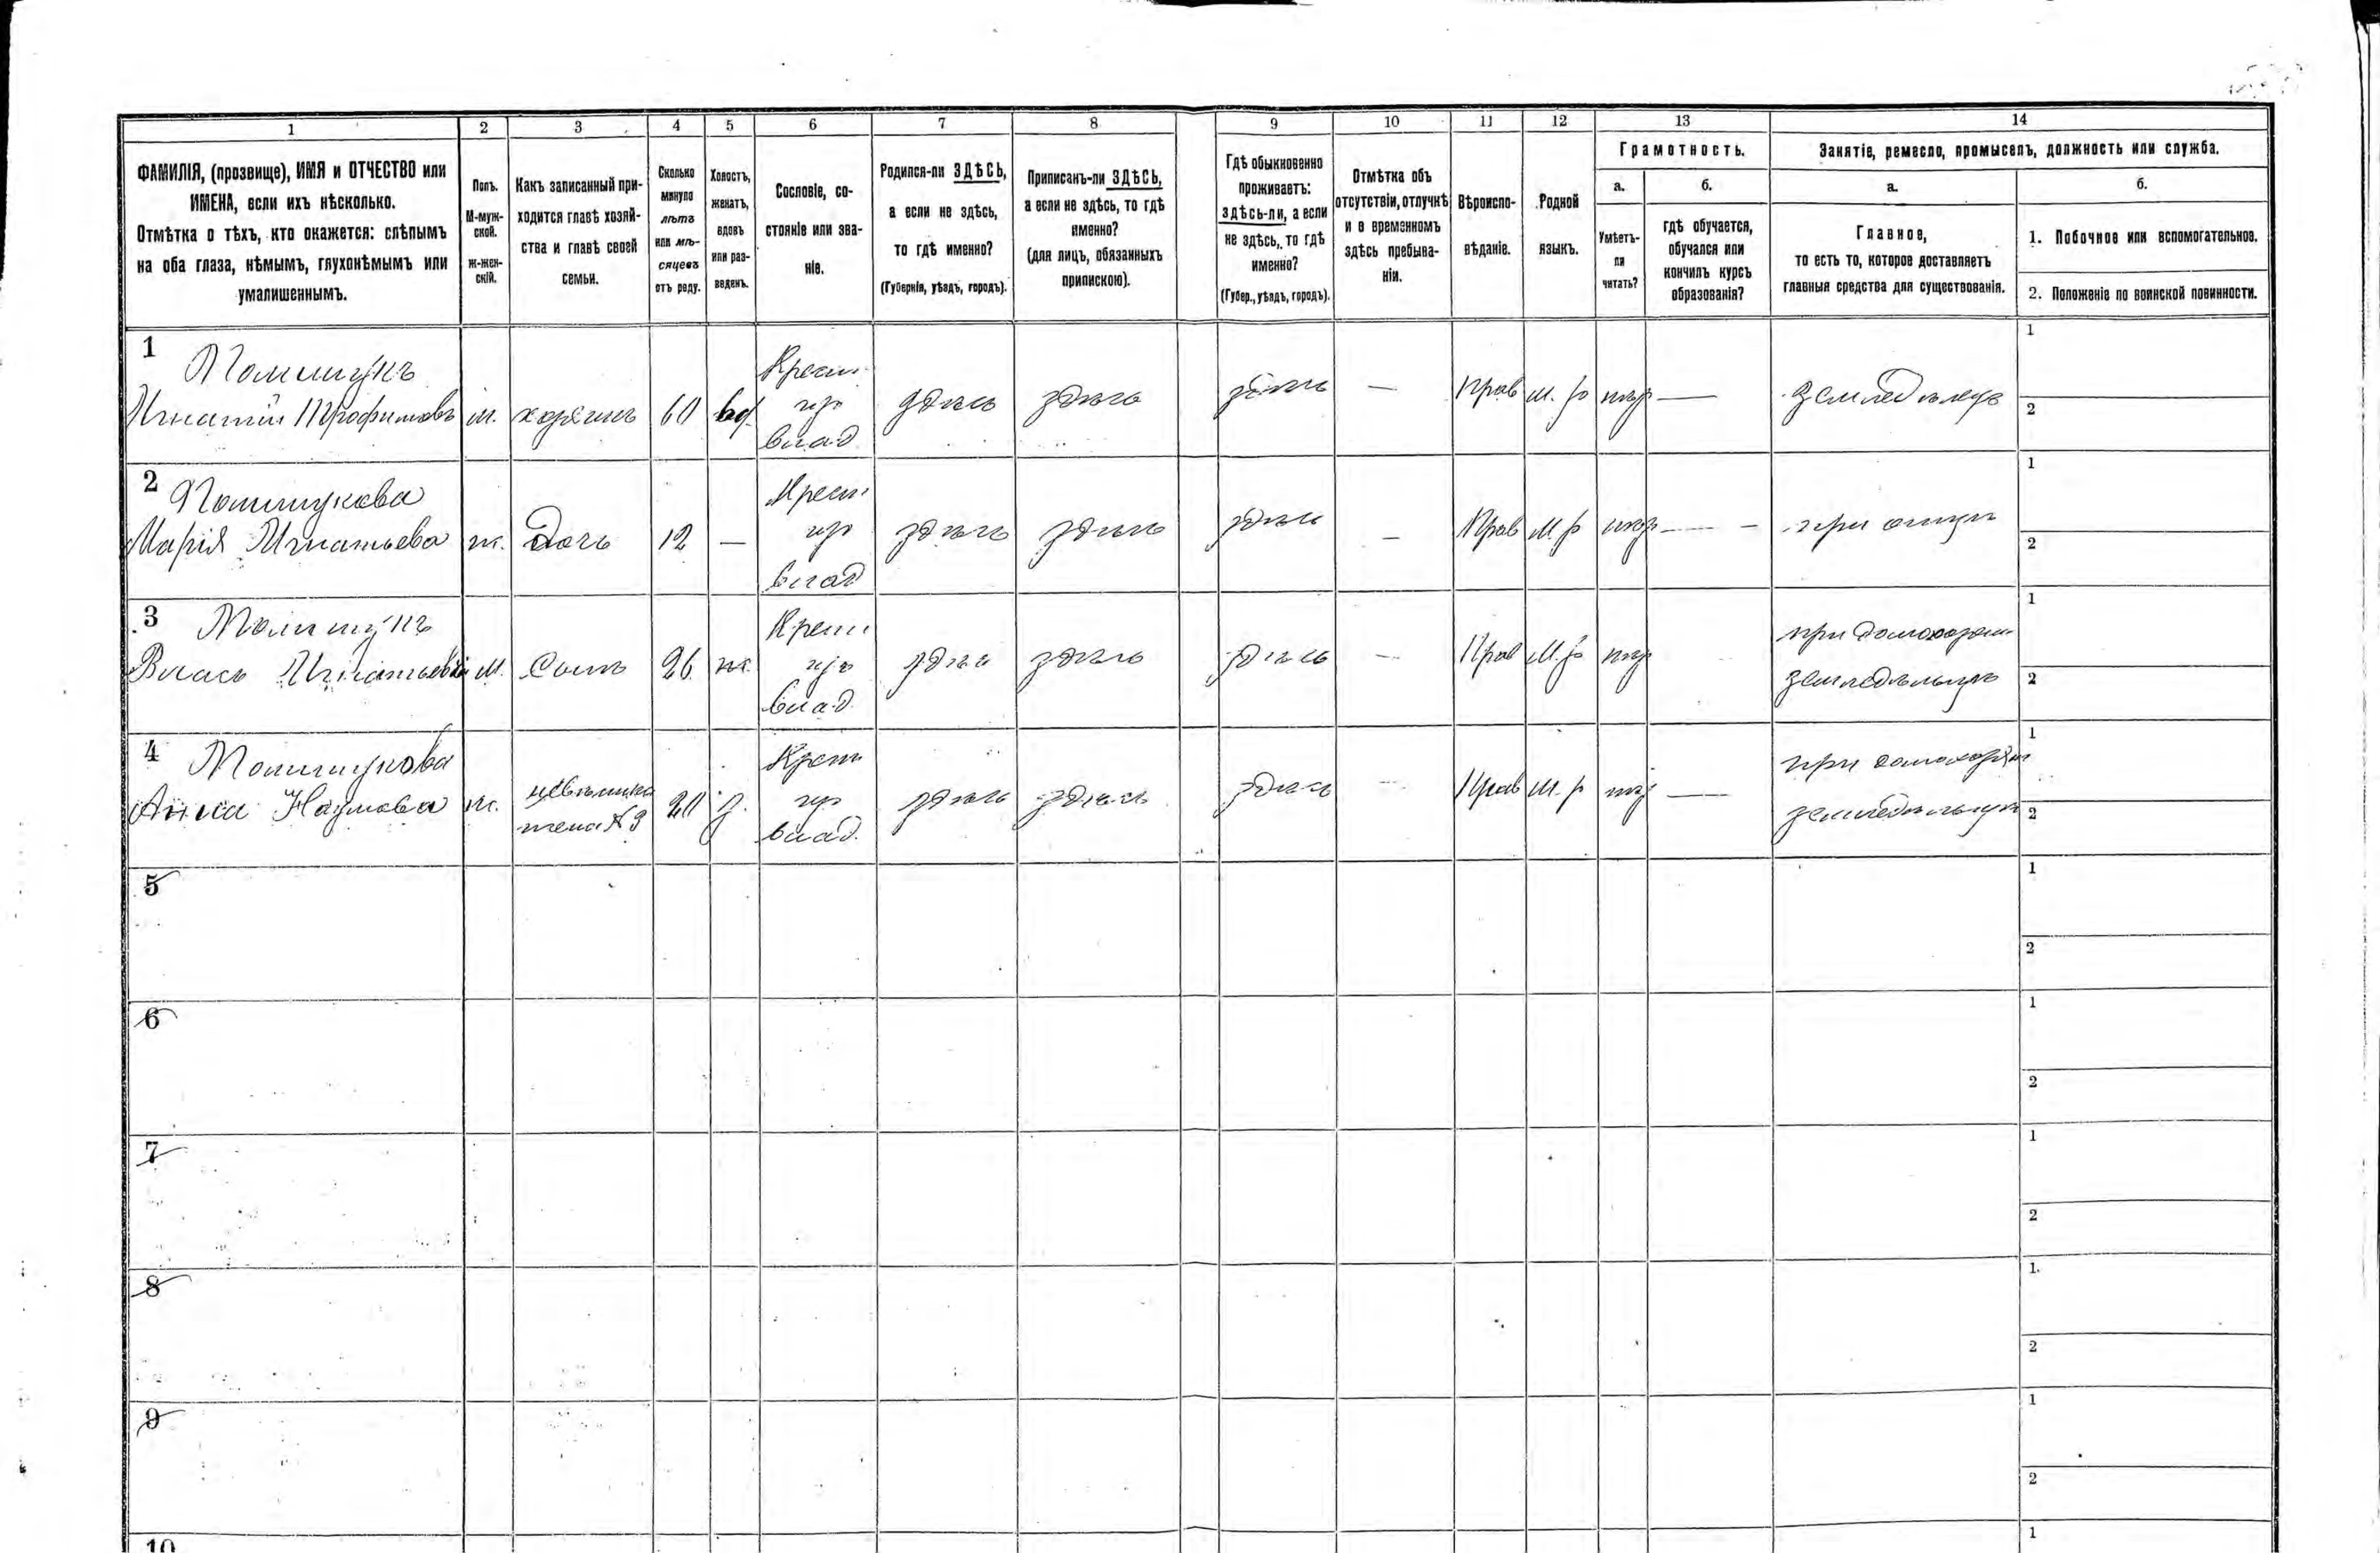 1 2 3 4 5 6 7 8 9 10 11 12 13 14
ФАМИЛІЯ, (прозвище), ИМЯ и ОТЧЕСТВО или
ИМЕНА, если ихъ нѣсколько.
Отмѣтка о тѣхъ, кто окажется: слѣпымъ
на оба глаза, нѣмымъ, глухонѣмымъ или
умалишеннымъ.
Полъ.
М-муж-
ской.
ж-жен-
скій.
Какъ записанный при-
ходится главѣ хозяй-
ства и главѣ своей
семьи.
Сколько
минуло
лѣтъ
или мѣ-
сяцевъ
отъ роду.
Холостъ,
женатъ,
вдовъ
или раз-
веденъ.
Сословіе, со-
стояніе или зва-
ніе.
Родился-ли ЗДѢСЬ,
а если не здѣсь,
то гдѣ именно?
(Губернія, уѣздъ, городъ).
Приписанъ-ли ЗДѢСЬ,
а если не здѣсь, то гдѣ
именно?
(для лицъ, обязанныхъ
припискою).
Гдѣ обыкновенно
проживаетъ:
здѣсь-ли, а если
не здѣсь, то гдѣ
именно?
(Губер., уѣздъ, городъ).
Отмѣтка объ
отсутствіи, отлучкѣ
и о временномъ
здѣсь пребыва-
ніи.
Вѣроиспо-
вѣданіе.
Родной
языкъ.
Грамотность.
а.
Умѣетъ-
ли
читать?
б.
гдѣ обучается,
обучался или
кончилъ курсъ
образованія?
Занятіе, ремесло, промыселъ, должность или служба.
а.
Главное,
то есть то, которое доставляетъ
главныя средства для существованія.
б.
1. Побочное или вспомогательное.
2. Положеніе по воинской повинности.
1
Игнатій Трофимовъ м. хозяинъ 60 вд.
Крест.
из
влад.
здѣсь здѣсь здѣсь — Прав м. р нѣт — земледѣлецъ
1
2
2
Марія Игнатьева ж. дочь 12 —
Крест
из
влад
здѣсь здѣсь здѣсь — Прав м р нѣт — — при отцѣ
1
2
3
Власъ Игнатьевъ м. сынъ 26 ж.
Крест
из
влад.
здѣсь здѣсь здѣсь — Прав м. р нѣт
при домохозяи-
земледѣльцѣ
1
2
4
Анна Наумова ж.
невѣстка
жена №3
20 з.
Крест
из
влад.
здѣсь здѣсь здѣсь — Прав м. р нѣт —
при домохозяи
земледѣльцѣ
1
2
5
1
2
6
1
2
7
1
2
8
1.
2
9
1
2
10
1